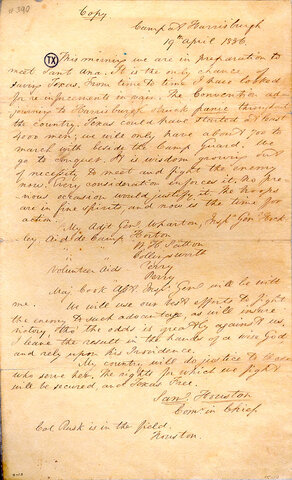 #390
Copy
Camp at Harrisburgh
19th April 1836.
TX
This morning we are in preparation to
meet Santa Ana. It is the only chance of
saving Texas. From time to time I have looked
for reinforcements in vain. The Convention ad-
journing to Harrisburgh struck panic throughout
the country. Texas could have started at least
4000 men; we will only have about 700 to
march with beside the Camp Guard. We
go to conquest. It is wisdom growing out
of necessity to meet and fight the enemy
now. Every consideration enforces it. No pre-
vious occasion would justify it. The troops
are in fine spirits and now is the time for
action.
My Adjt Genl Wharton, Inspr Gen Hock-
ley, Aid de Camp Horton
" " W H Patton
" " Collingsworth
Volunteer Aids Perry
" " Perry
Maj Cook Asst Inspr Genl will be with
me. We will use our best efforts to fight
the enemy to such advantage, as will insure
victory, tho' the odds is greatly against us.
I leave the result in the hands of a wise God
and rely upon his Providence.
My country will do justice to those
who serve her. The rights for which we fight
will be secured, and Texas Free.
Saml Houston
Comr in Chief
Col Rusk is in the field.
Houston.